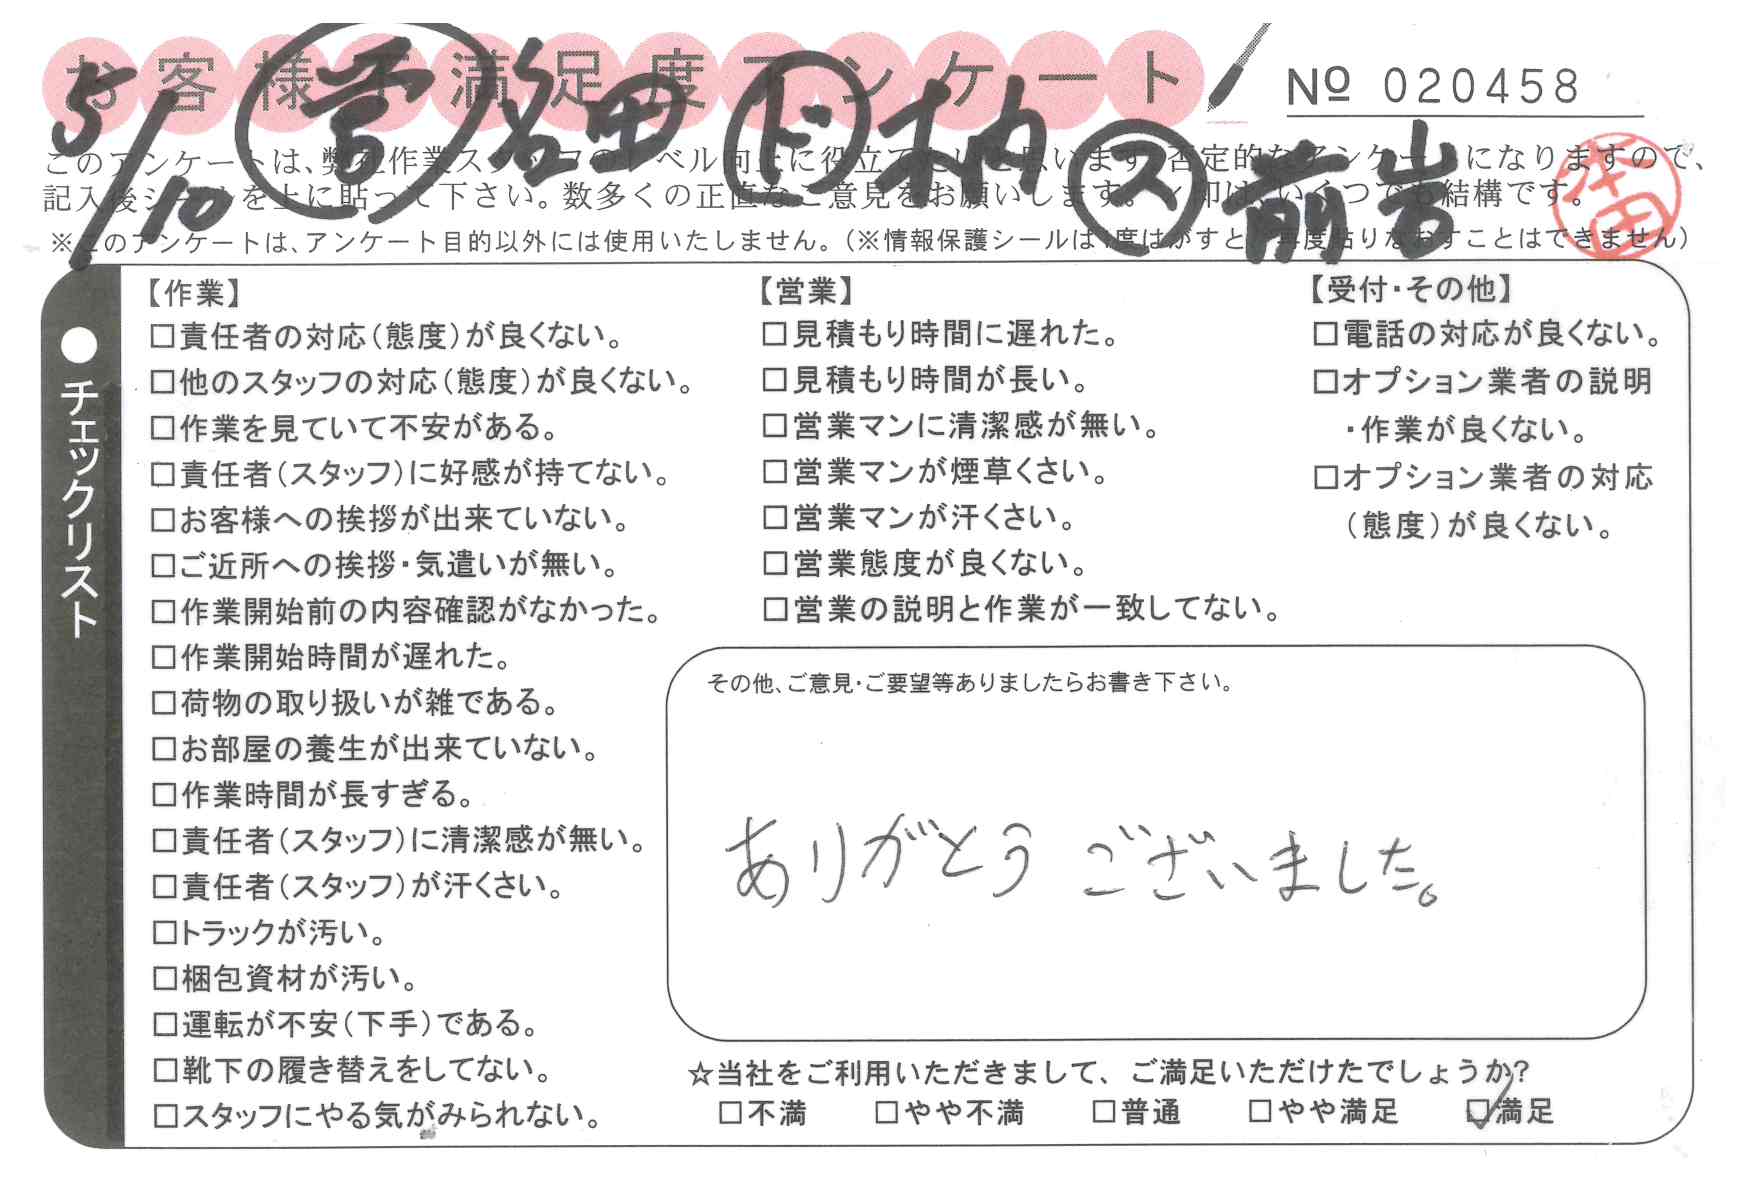 お客様不満足度アンケート
№ 020458
5/10 営 岩田 ド 柄 ス 前岩
このアンケートは、弊社作業スタッフのレベル向上に役立てたいと思います。否定的なアンケートになりますので、
記入後シールを上に貼って下さい。数多くの正直なご意見をお願いします。✓印は、いくつでも結構です。
※このアンケートは、アンケート目的以外には使用いたしません。(※情報保護シールは1度はがすと、再度貼りなおすことはできません)
●チェックリスト
【作業】
□責任者の対応(態度)が良くない。
□他のスタッフの対応(態度)が良くない。
□作業を見ていて不安がある。
□責任者(スタッフ)に好感が持てない。
□お客様への挨拶が出来ていない。
□ご近所への挨拶・気遣いが無い。
□作業開始前の内容確認がなかった。
□作業開始時間が遅れた。
□荷物の取り扱いが雑である。
□お部屋の養生が出来ていない。
□作業時間が長すぎる。
□責任者(スタッフ)に清潔感が無い。
□責任者(スタッフ)が汗くさい。
□トラックが汚い。
□梱包資材が汚い。
□運転が不安(下手)である。
□靴下の履き替えをしてない。
□スタッフにやる気がみられない。
【営業】
□見積もり時間に遅れた。
□見積もり時間が長い。
□営業マンに清潔感が無い。
□営業マンが煙草くさい。
□営業マンが汗くさい。
□営業態度が良くない。
□営業の説明と作業が一致してない。
【受付・その他】
□電話の対応が良くない。
□オプション業者の説明
・作業が良くない。
□オプション業者の対応
(態度)が良くない。
その他、ご意見・ご要望等ありましたらお書き下さい。
ありがとうございました。
☆当社をご利用いただきまして、ご満足いただけたでしょうか?
□不満 □やや不満 □普通 □やや満足 ☑満足